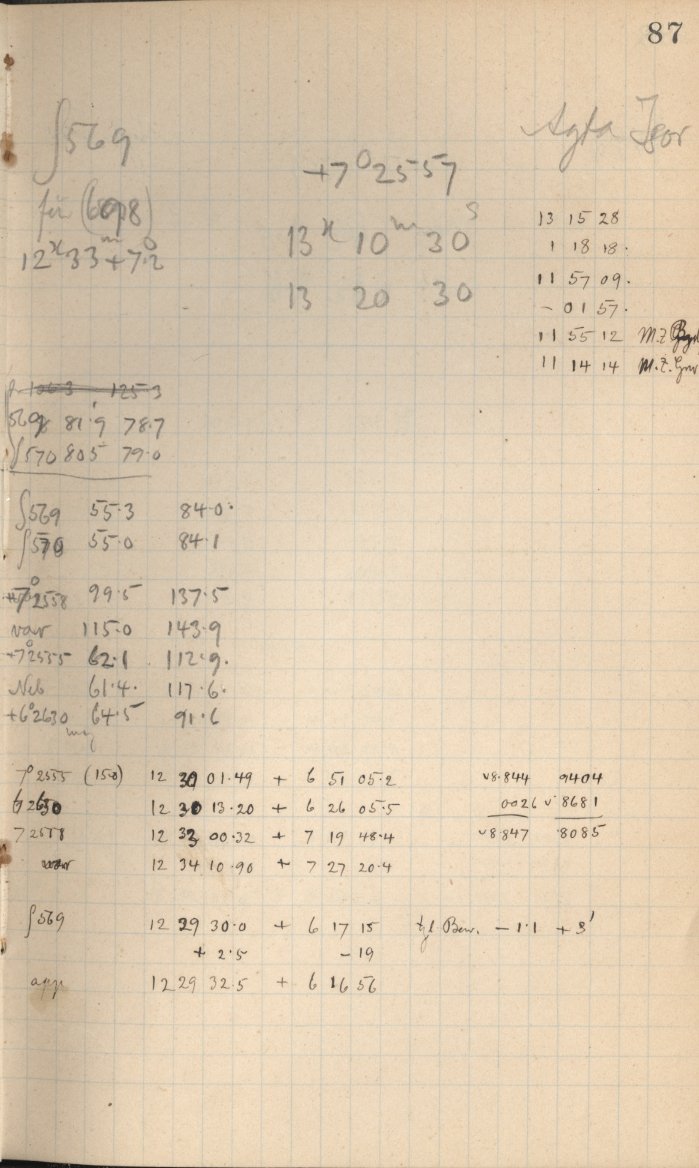 87
∫569
Agfa Isor
+7° 25 57
für (6098)
12ʰ 33ᵐ + 7.2°
13ʰ 10ᵐ 30ˢ
13 20 30
13 15 28
1 18 18.
11 57 09.
- 01 57.
11 55 12 M.Z.
11 14 14 M.Z. Grw
1063 125.3
569 81.9 78.7
∫570 805 79.0
∫569 55.3 84.0.
∫570 55.0 84.1
+7° 2558 99.5 137.5
var 115.0 143.9
+7° 2555 62.1 112.9.
Neb 61.4. 117.6.
+6° 2630 64.5 91.6
7° 2555 (150) 12 30 01.49 + 6 51 05.2
6 2630 12 30 13.20 + 6 26 05.5
7 2558 12 33 00.32 + 7 19 48.4
var 12 34 10.90 + 7 27 20.4
v8.844 9404
0026 v 8681
v8.847 .8085
∫569 12 29 30.0 + 6 17 15 tgl Bew. - 1.1 + 3'
+ 2.5 - 19
app 12 29 32.5 + 6 16 56